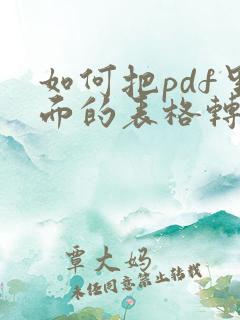 如何把pdf里
而的表格轉
覃大妈
未经同意禁止转载